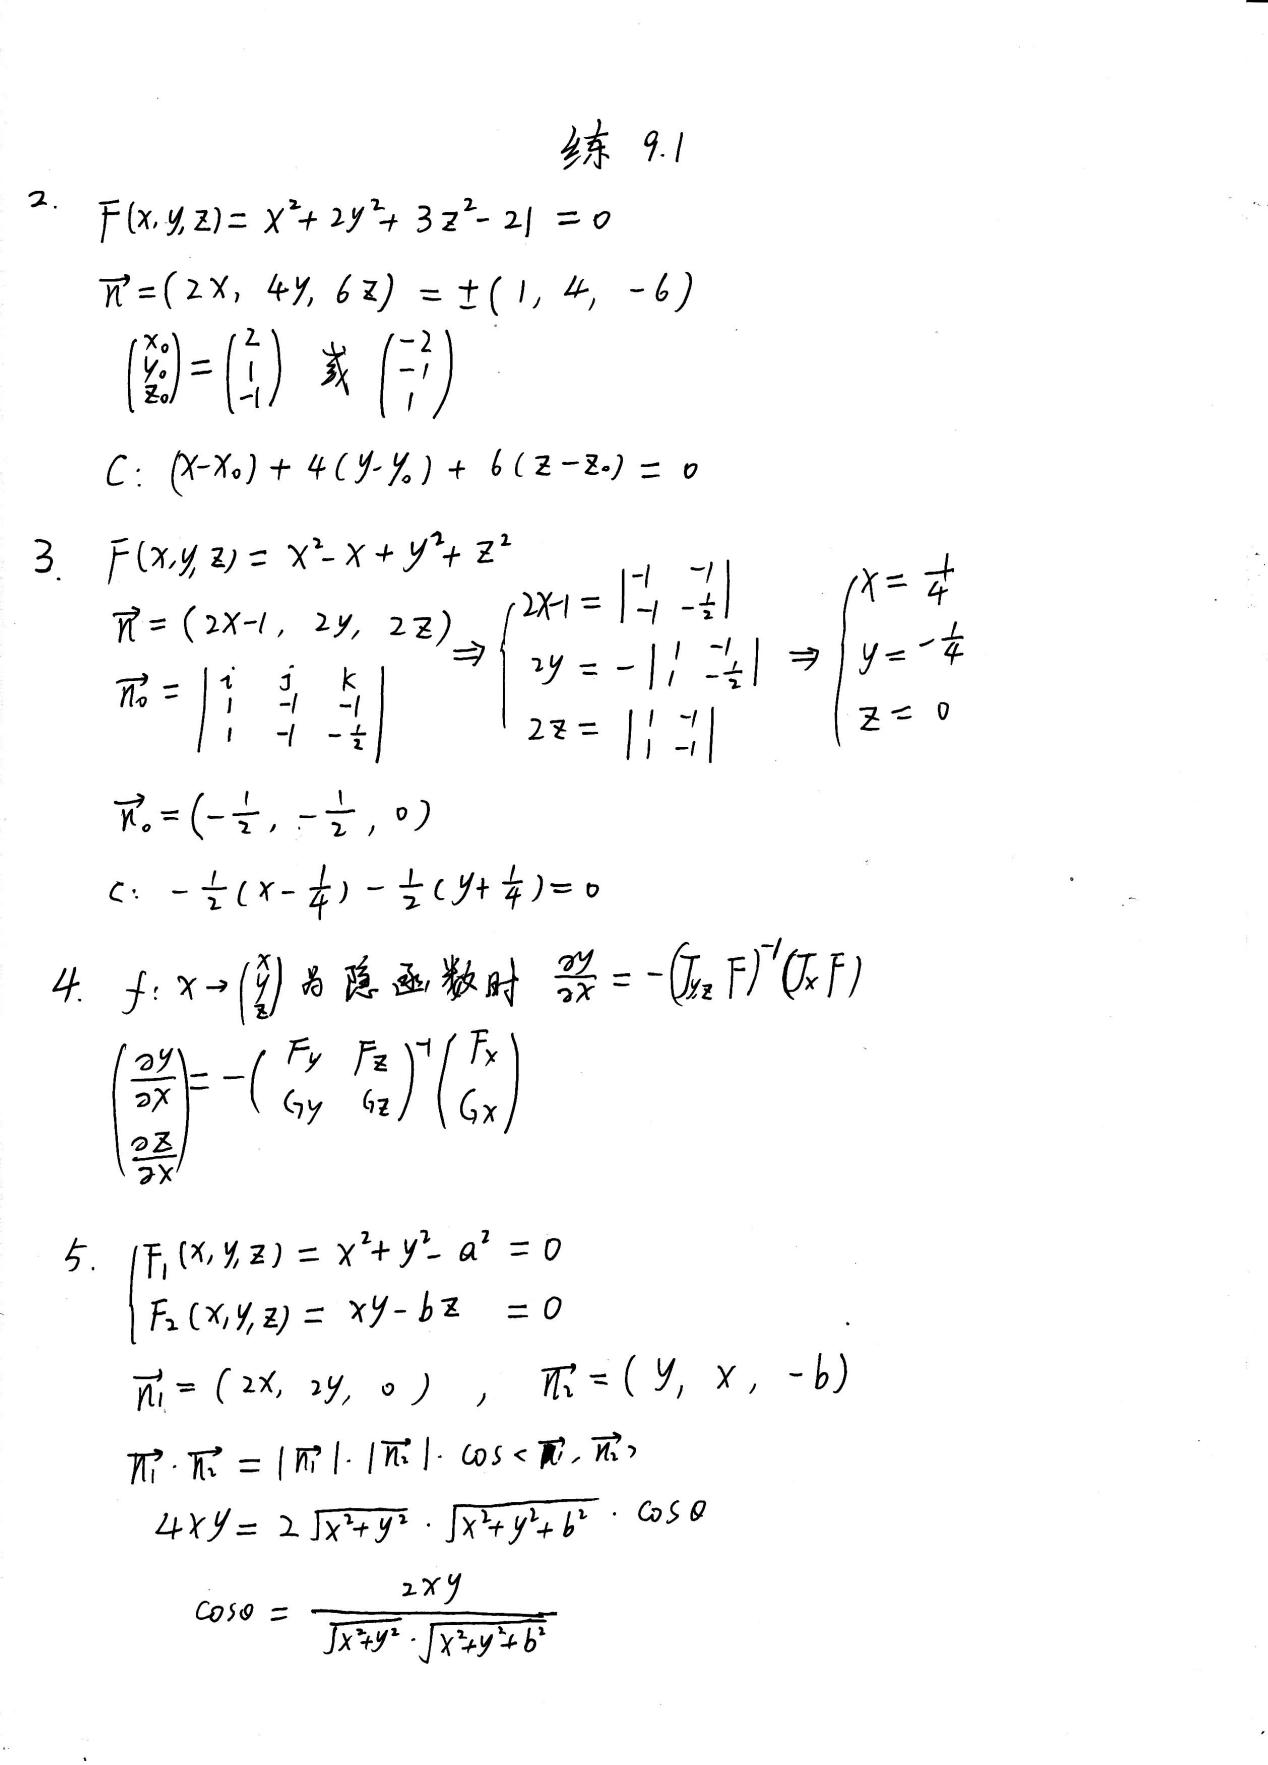 练 9.1
2. F(x,y,z) = x²+2y²+3z²-21 = 0
n⃗ = (2x, 4y, 6z) = ±(1, 4, -6)
(x₀ y₀ z₀) = (2 1 -1) 或 (-2 -1 1)
C: (x-x₀)+4(y-y₀)+6(z-z₀) = 0
3. F(x,y,z) = x²-x+y²+z²
n⃗ = (2x-1, 2y, 2z) ⇒ { 2x-1 = |-1 -1; -1 -1/2| ⇒ { x = 1/4
2y = -|1 -1; 1 -1/2| y = -1/4
n⃗₀ = |i j k; 1 -1 -1; 1 -1 -1/2| 2z = |1 -1; 1 -1| z = 0
n⃗₀ = (-1/2, -1/2, 0)
C: -1/2(x-1/4) - 1/2(y+1/4) = 0
4. f: x→(x y z) 为隐函数时 ∂y/∂x = -(J_yz F)⁻¹(J_x F)
(∂y/∂x; ∂z/∂x) = -(Fy Fz; Gy Gz)⁻¹(Fx; Gx)
5. { F₁(x,y,z) = x²+y²-a² = 0
F₂(x,y,z) = xy-bz = 0
n₁⃗ = (2x, 2y, 0), n₂⃗ = (y, x, -b)
n₁⃗·n₂⃗ = |n₁⃗|·|n₂⃗|·cos<n₁⃗, n₂⃗>
4xy = 2√(x²+y²)·√(x²+y²+b²)·cosθ
cosθ = 2xy/(√(x²+y²)·√(x²+y²+b²))